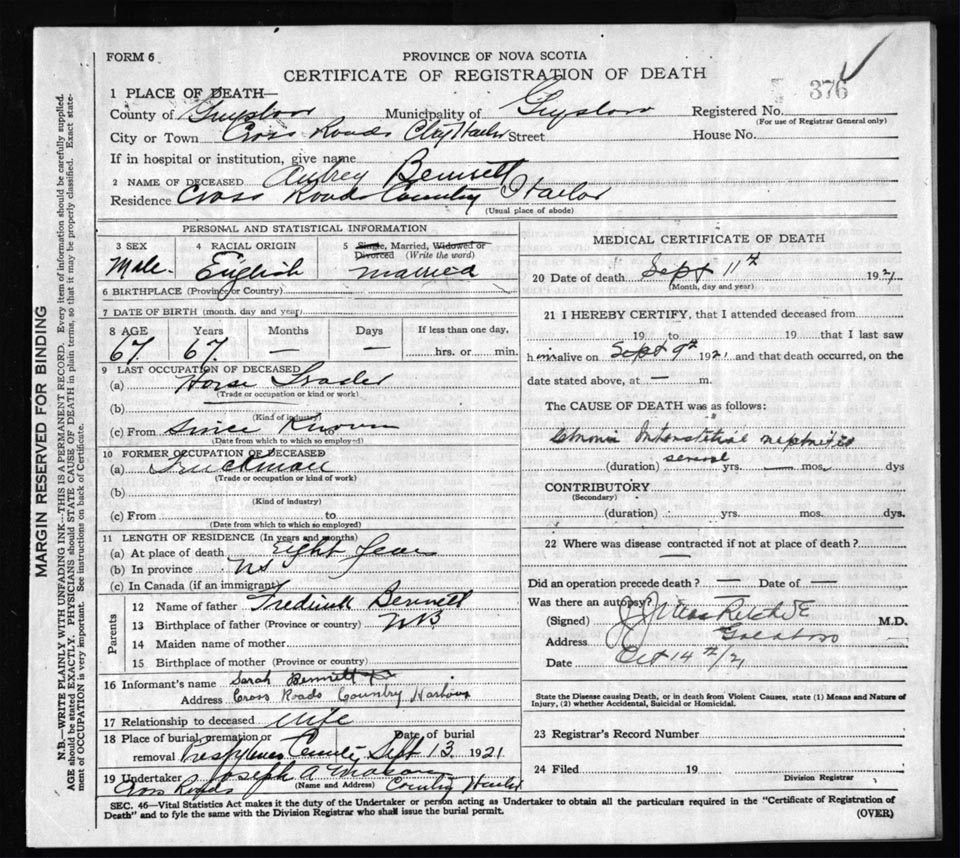 FORM 6
PROVINCE OF NOVA SCOTIA
CERTIFICATE OF REGISTRATION OF DEATH
376
1 PLACE OF DEATH—
County of Guysboro Municipality of Guysboro Registered No.
(For use of Registrar General only)
City or Town Cross Roads Harbor Street House No.
If in hospital or institution, give name
2 NAME OF DECEASED Aubrey Bennett
Residence Cross Roads Country Harbor
(Usual place of abode)
PERSONAL AND STATISTICAL INFORMATION
3 SEX Male.
4 RACIAL ORIGIN English
5 Single, Married, Widowed or Divorced (Write the word)
married
6 BIRTHPLACE (Province or Country)
7 DATE OF BIRTH (month, day and year)
8 AGE Years Months Days If less than one day,
67 67 — — hrs. or min.
9 LAST OCCUPATION OF DECEASED
(a) Horse Trader
(Trade or occupation or kind or work)
(b)
(Kind of industry)
(c) From Since Known
(Date from which to which so employed)
10 FORMER OCCUPATION OF DECEASED
(a) Truckman
(Trade or occupation or kind of work)
(b)
(Kind of industry)
(c) From to
(Date from which to which so employed)
11 LENGTH OF RESIDENCE (In years and months)
(a) At place of death Eight Years
(b) In province NS
(c) In Canada (if an immigrant)
Parents
12 Name of father Fredrick Bennett
13 Birthplace of father (Province or country) NB
14 Maiden name of mother
15 Birthplace of mother (Province or country)
16 Informant's name Sarah Bennett
Address Cross Roads Country Harbour
17 Relationship to deceased Wife
18 Place of burial, cremation or removal Date of burial
Sept 13 1921
19 Undertaker Joseph A
(Name and Address)
Cross Roads Country Harbor
MEDICAL CERTIFICATE OF DEATH
20 Date of death Sept 11th 1921
(Month, day and year)
21 I HEREBY CERTIFY, that I attended deceased from
19 to 19 that I last saw
him alive on Sept 9th 1921 and that death occurred, on the
date stated above, at — m.
The CAUSE OF DEATH was as follows:
Chronic Interstitial nephritis
(duration) several yrs. — mos. dys
CONTRIBUTORY
(Secondary)
(duration) yrs. mos. dys.
22 Where was disease contracted if not at place of death?
—
Did an operation precede death? — Date of —
Was there an autopsy?
(Signed) M.D.
Address Goldboro
Date Oct 14th/21
State the Disease causing Death, or in death from Violent Causes, state (1) Means and Nature of
Injury, (2) whether Accidental, Suicidal or Homicidal.
23 Registrar's Record Number
24 Filed 19
Division Registrar
SEC. 46—Vital Statistics Act makes it the duty of the Undertaker or person acting as Undertaker to obtain all the particulars required in the "Certificate of Registration of
Death" and to fyle the same with the Division Registrar who shall issue the burial permit.
(OVER)
MARGIN RESERVED FOR BINDING
N.B.—WRITE PLAINLY WITH UNFADING INK—THIS IS A PERMANENT RECORD. Every item of information should be carefully supplied.
AGE should be stated EXACTLY. PHYSICIANS should STATE CAUSE OF DEATH in plain terms, so that it may be properly classified. Exact statement of OCCUPATION is very important. See instructions on back of Certificate.